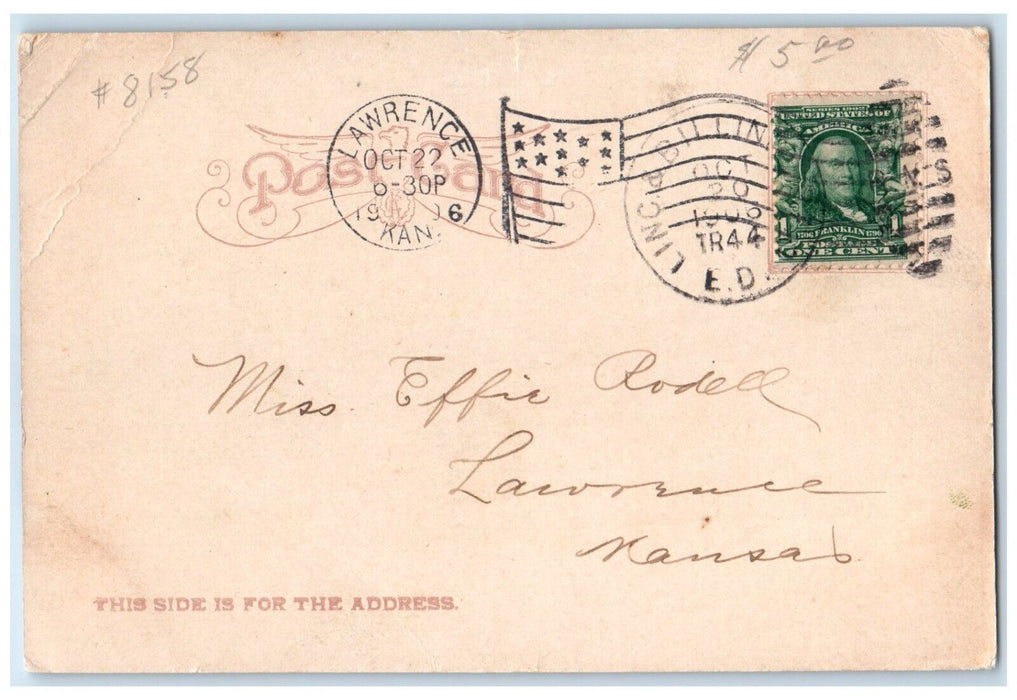 # 8158
$ 5.00
Post Card
LAWRENCE
OCT 22
6-30P
1906
KAN.
LINC. & BILLIN
OCT
20
1906
TR 44
E.D.
SERIES 1902
UNITED STATES OF
AMERICA
1
1706 FRANKLIN 1790
POSTAGE
ONE CENT
Miss. Effie Rodell
Lawrence
Kansas.
THIS SIDE IS FOR THE ADDRESS.